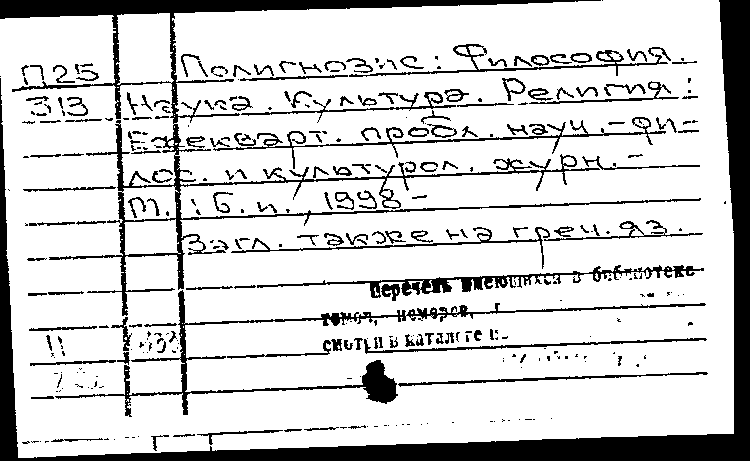 П25 Полигнозис: Философия.
313 Наука. Культура. Религия:
Ежекварт. пробл. науч.-фи-
лос. и культурол. журн. -
М.: Б. и., 1998-
Загл. также на греч. яз.
Перечень имеющихся в библиотеке
томов, номеров, г
смотри в каталоге